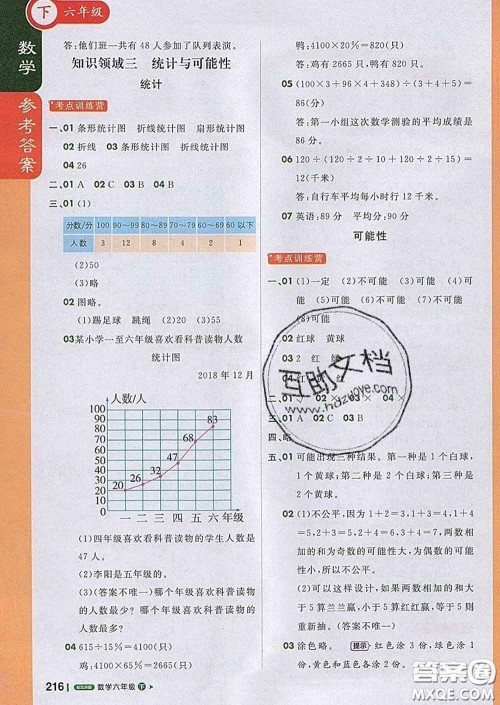 下 六年级
数学
参考答案
答:他们班一共有 48 人参加了队列表演。
知识领域三 统计与可能性
统计
考点训练营
一、01 条形统计图 折线统计图 扇形统计图
02 折线 03 条形统计图 折线统计图
04 26
二、01 A 02 C 03 B 04 B
三、01 (1)
分数/分 100 90~99 80~89 70~79 60~69 60 以下
人数 3 12 8 4 2 1
(2)50
(3)略。
02 图略。
(1)踢足球 跳绳 (2)20
03 某小学一至六年级喜欢看科普读物人数
统计图
2018 年 12 月
人数/人
100
90
80
70
60
50
40
30
20
10
0
20 26 32 47 68 83
一 二 三 四 五 六 年级
(1)四年级喜欢看科普读物的学生人数是
47 人。
(2)李阳是五年级的。
(3)(答案不唯一) 哪个年级喜欢科普读物
的人数最少? 哪个年级喜欢科普读物的
人数最多?
04 615÷15%=4100(只)
鸡:4100×65%=2665(只)
216
数学六年级 下
鸭:4100×20%=820(只)
答:鸡有 2665 只,鸭有 820 只。
05 (100×3+96×4+348)÷(3+4+5)=
86(分)
答:第一小组这次数学测验的平均成绩是
86 分。
06 120÷(120÷10+120÷15)=120÷
12(千米)
答:自行车平均每小时行 12 千米。
07 英语:89 分 平均分:90 分
可能性
考点训练营
一、01 (1)一定 (2)不可能 (3)可能
(4)不可能 (5)可能 (6)不可能
(7)可能
02 红球 黄球
03 2 红 绿
04 红
二、01 √
03 × 04 ×
三、01 B 02 C 03 B
四、略
五、01 可能出现三种结果。第一种是 1 个白球,
1 个黄球;第二种是 2 个白球;第三种是
2 个黄球。
02 (1)不公平,因为 1+2=3,1+3=4,1+4
=5,2+3=5,2+4=6,3+4=7,两数相
加的和为奇数的可能性大,为偶数的可能
性小,所以不公平。
(2)可以这样设计:如果两数相加的和大
于 5 算兰兰赢,小于 5 算红红赢,等于 5 则
重新开始。
03 涂色略。 提示 红色涂 3 份,绿色涂 1
份,黄色涂 2 份。
互助文档
www.hdzuoye.com
答案圈
MXQE.COM